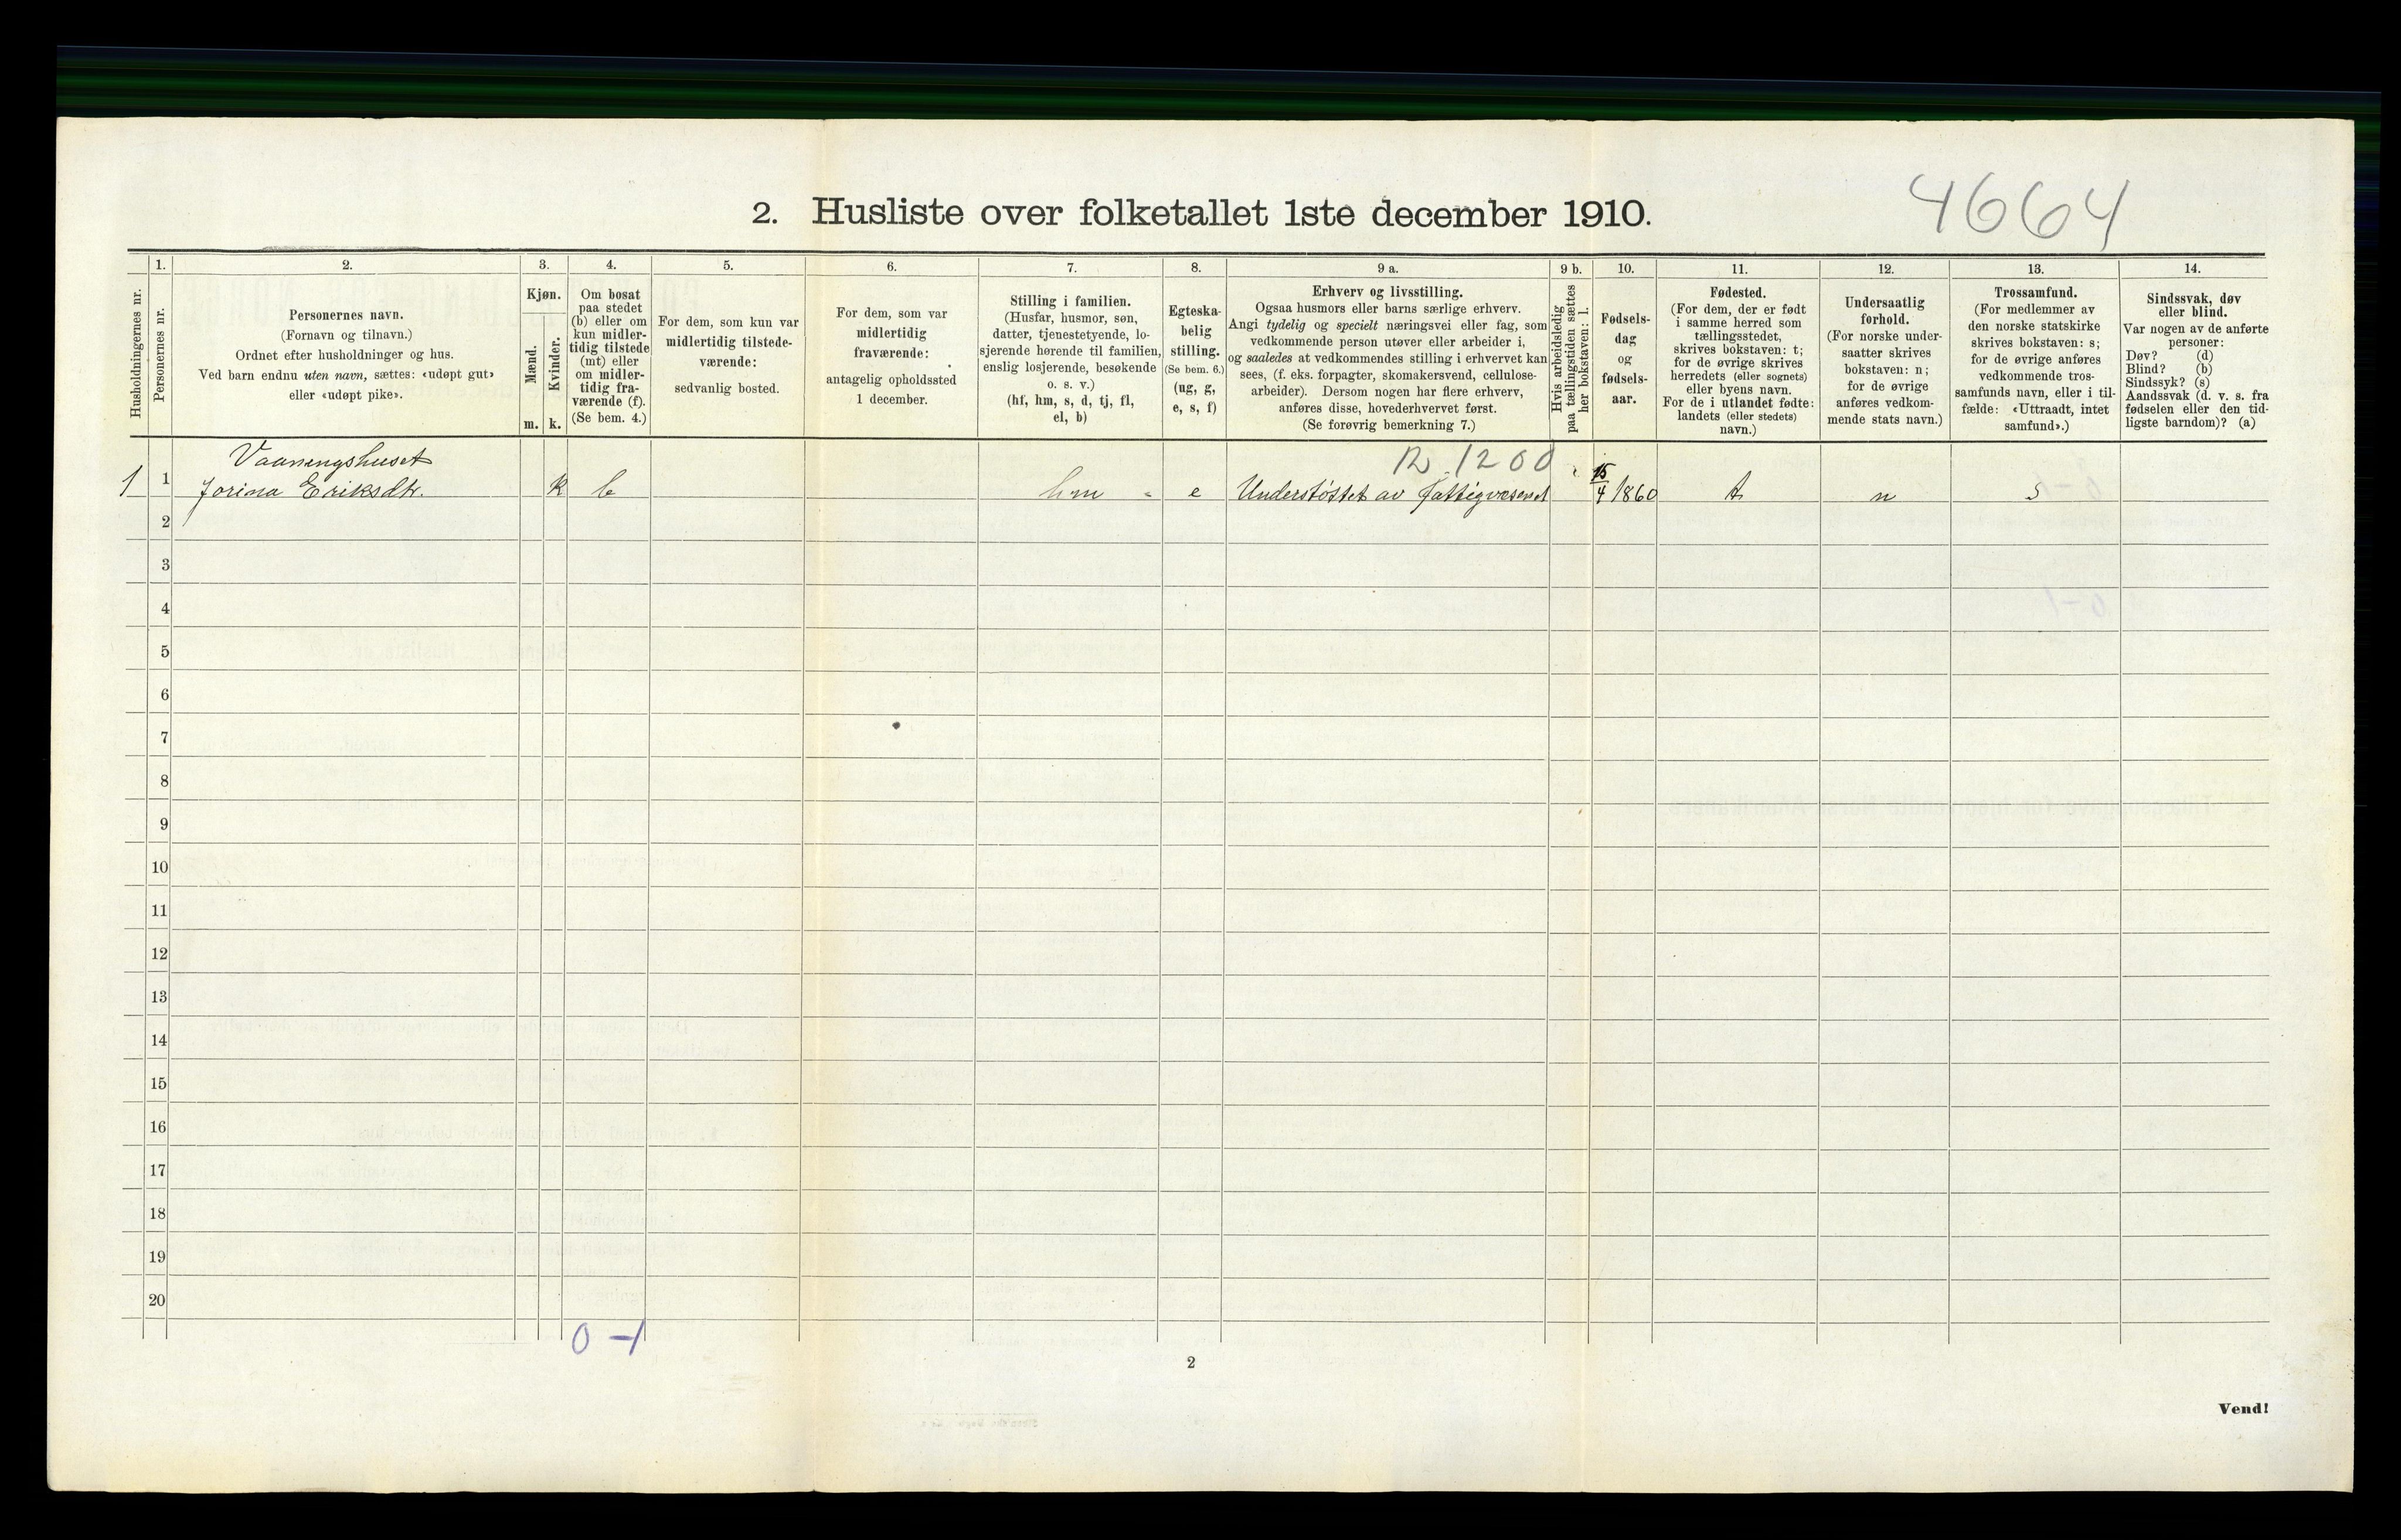 4664
2. Husliste over folketallet 1ste december 1910.
Husholdningernes nr.
1.
Personernes nr.
2.
Personernes navn.
(Fornavn og tilnavn.)
Ordnet efter husholdninger og hus.
Ved barn endnu uten navn, sættes: «udøpt gut»
eller «udøpt pike».
3.
Kjøn.
Mænd.
Kvinder.
m.
k.
4.
Om bosat
paa stedet
(b) eller om
kun midler-
tidig tilstede
(mt) eller
om midler-
tidig fra-
værende (f).
(Se bem. 4.)
5.
For dem, som kun var
midlertidig tilstede-
værende:
sedvanlig bosted.
6.
For dem, som var
midlertidig
fraværende:
antagelig opholdssted
1 december.
7.
Stilling i familien.
(Husfar, husmor, søn,
datter, tjenestetyende, lo-
sjerende hørende til familien,
enslig losjerende, besøkende
o. s. v.)
(hf, hm, s, d, tj, fl,
el, b)
8.
Egteska-
belig
stilling.
(Se bem. 6.)
(ug, g,
e, s, f)
9 a.
Erhverv og livsstilling.
Ogsaa husmors eller barns særlige erhverv.
Angi tydelig og specielt næringsvei eller fag, som
vedkommende person utøver eller arbeider i,
og saaledes at vedkommendes stilling i erhvervet kan
sees, (f. eks. forpagter, skomakersvend, cellulose-
arbeider). Dersom nogen har flere erhverv,
anføres disse, hovederhvervet først.
(Se forøvrig bemerkning 7.)
9 b.
Hvis arbeidsledig
paa tællingstiden sættes
her bokstaven: l.
10.
Fødsels-
dag
og
fødsels-
aar.
11.
Fødested.
(For dem, der er født
i samme herred som
tællingsstedet,
skrives bokstaven: t;
for de øvrige skrives
herredets (eller sognets)
eller byens navn.
For de i utlandet fødte:
landets (eller stedets)
navn.)
12.
Undersaatlig
forhold.
(For norske under-
saatter skrives
bokstaven: n;
for de øvrige
anføres vedkom-
mende stats navn.)
13.
Trossamfund.
(For medlemmer av
den norske statskirke
skrives bokstaven: s;
for de øvrige anføres
vedkommende tros-
samfunds navn, eller i til-
fælde: «Uttraadt, intet
samfund».)
14.
Sindssvak, døv
eller blind.
Var nogen av de anførte
personer:
Døv? (d)
Blind? (b)
Sindssyk? (s)
Aandssvak (d. v. s. fra
fødselen eller den tid-
ligste barndom)? (a)
Vaaningshuset 1200
1 1 Jorina Eriksdtr. k b hm - e Understøttet av fattigvæsenet 15/4 1860 t n s
2
3
4
5
6
7
8
9
10
11
12
13
14
15
16
17
18
19
20
0-1
2
Vend!